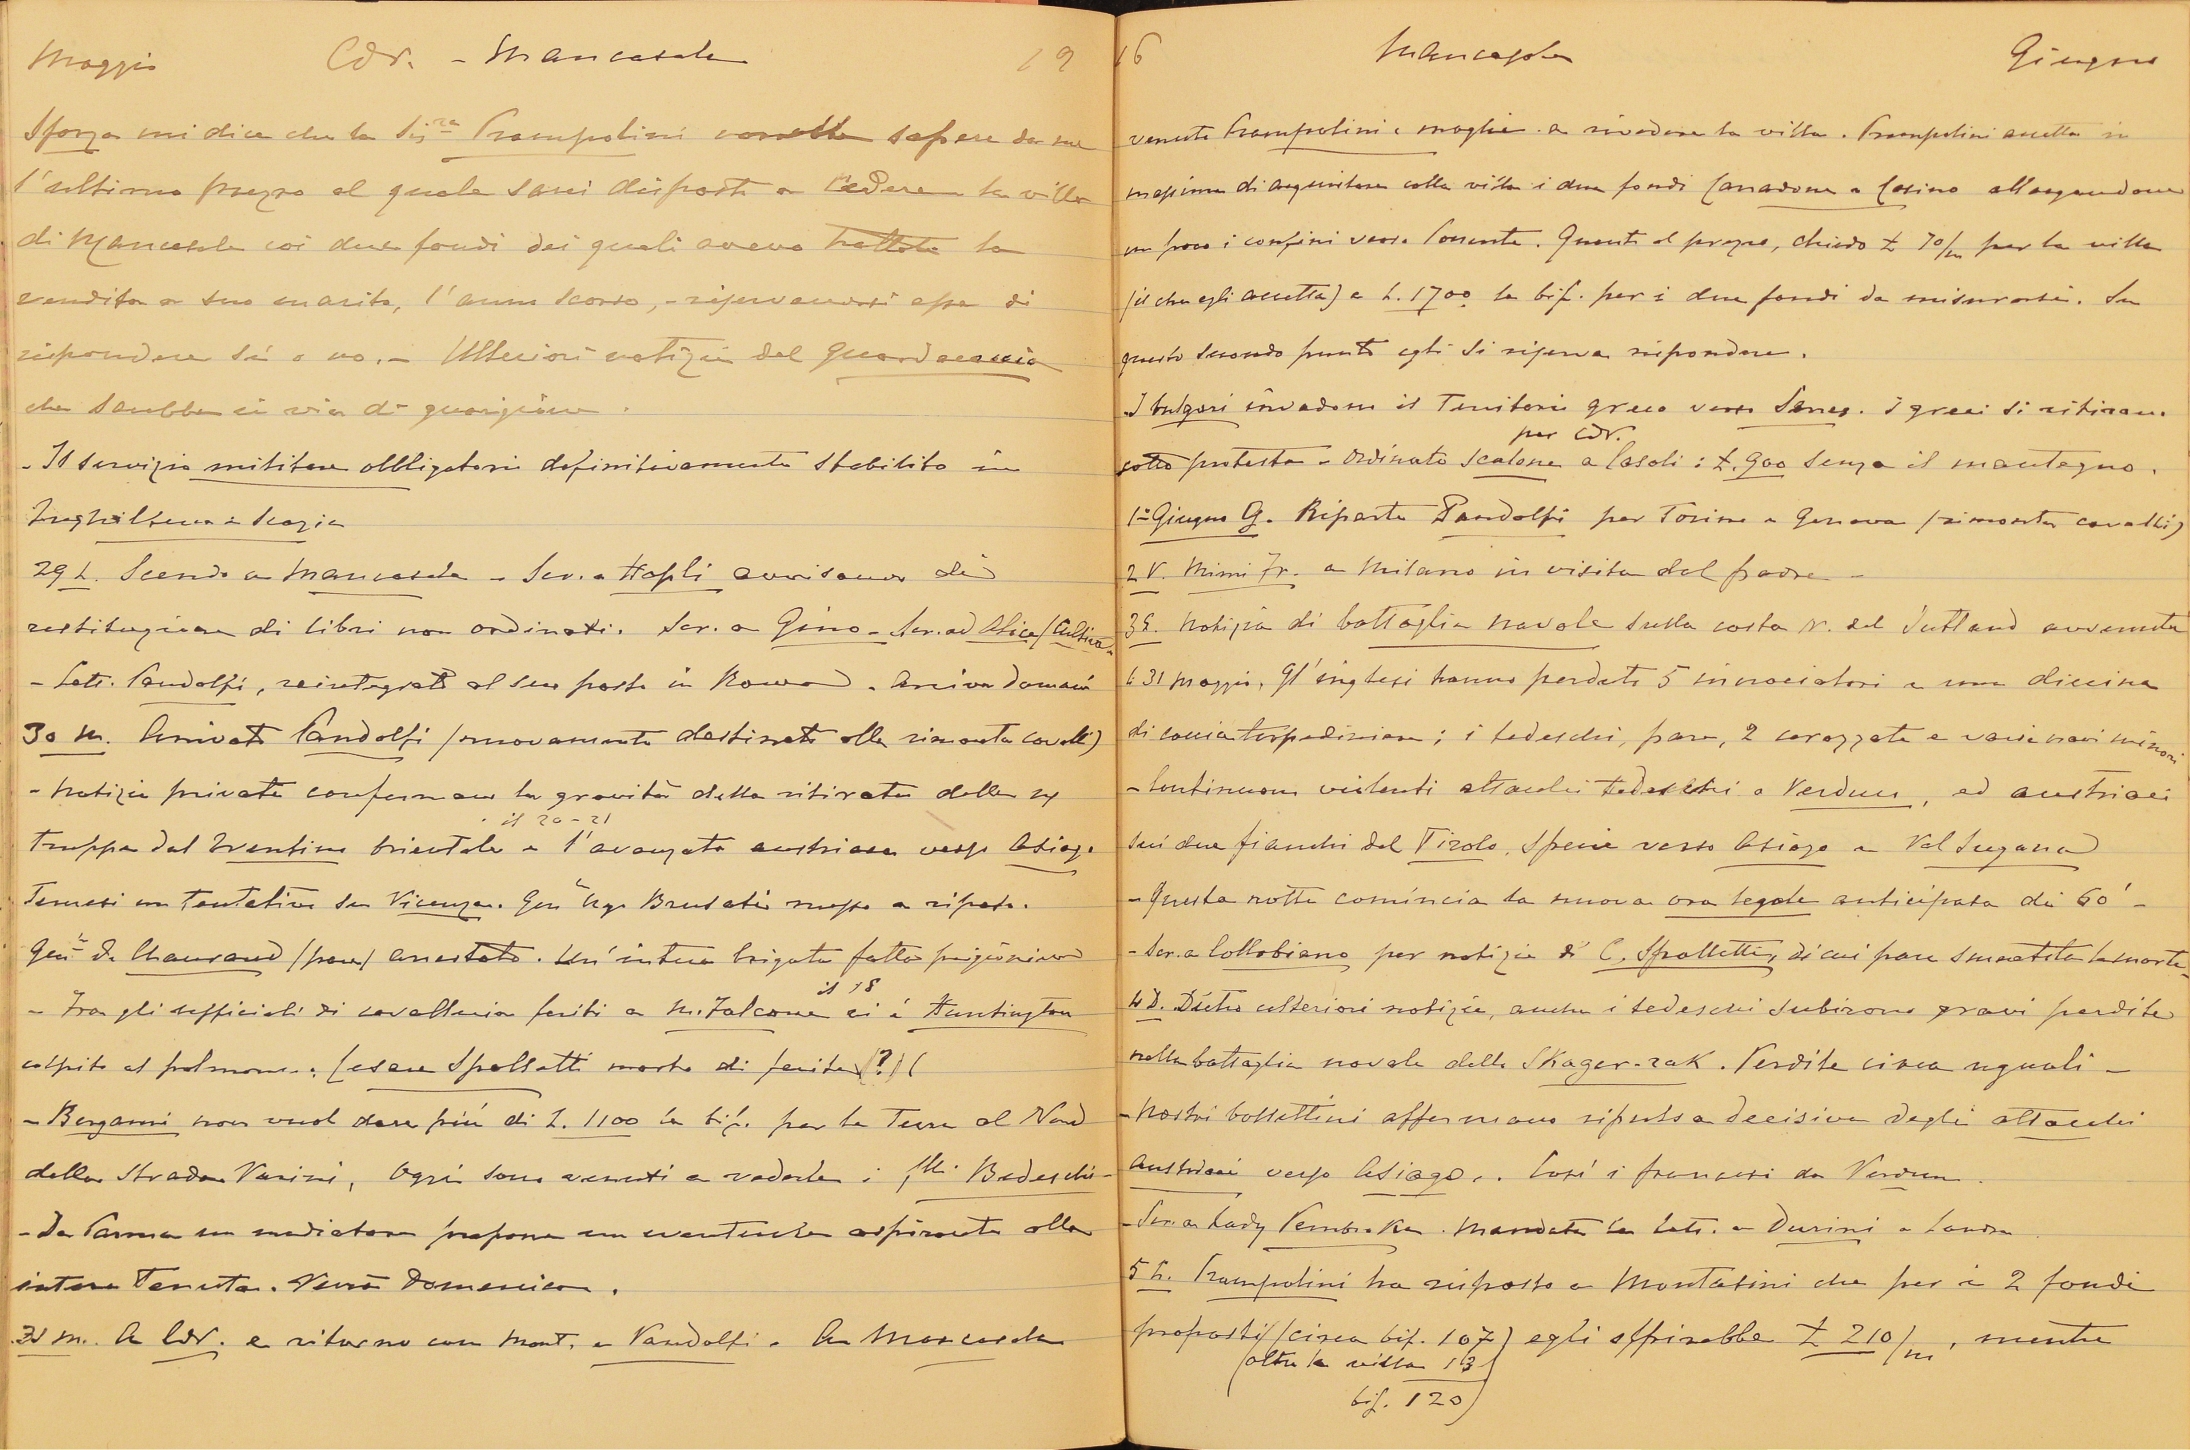 Maggio Cdr. - Mancasale 19
Sforza mi dice che la Sig.ra Prampolini vorrebbe sapere da me
l'ultimo prezzo al quale sarei disposto a cedere la villa
di Mancasale coi due fondi dei quali avevo trattato la
vendita a suo marito, l'anno scorso, - riservandosi essa di
rispondere sì o no. - Ulteriori notizie del guardacaccia
che sarebbe in via di guarigione.
- Il servizio militare obbligatorio definitivamente stabilito in
Inghilterra e Scozia
29 L. Scendo a Mancasale - Scr. a Hoepli avvisando di
restituzione di libri non ordinati. Scr. a Gino - Scr. ad Alice
- Lett. Pandolfi, reintegrato al suo posto in Roma. Arriva domani
30 M. Arrivato Pandolfi (nuovamente destinato alla rimonta cavalli)
- Notizie private confermano la gravità della ritirata delle
il 20-21
truppe dal Trentino orientale e l'avanzata austriaca verso Asiago
Temesi un tentativo su Vicenza. Gen. Ugo Brusati messo a riposo.
Gen. De Chaurand (pare) arrestato. Un'intera brigata fatta prigioniera
il 18
- Fra gli ufficiali di cavalleria feriti a M.falcone vi è Huntington
colpito al polmone. Cesare Spalletti morto di ferite (?)
- Bergami non vuol dare più di L. 1100 la bif. per la Terra al Nord
della Strada Vasini, Oggi sono venuti a vederla i flli Bedeschi -
- Da Parma un mediatore propone un eventuale aspirante alla
intera Tenuta. Verrà Domenica.
31 M. A Cdr. e ritorno con Mont. e Pandolfi. A Mancasale
16 Mancasale Giugno
venuti Prampolini e moglie a rivedere la villa. Prampolini accetta in
massima di acquistare colla villa i due fondi Canadone e Casino allargandone
un poco i confini verso Ponente. Quanto al prezzo, chiedo £ 70/m per la villa
(il che egli accetta) e L. 1700 la bif. per i due fondi da misurarsi. Su
questo secondo punto egli si riserva rispondere.
- I bulgari invadono il Territorio greco verso Seres. I greci si ritirano
per Cdr.
sotto protesta - Ordinato scalone a Casoli: £. 900 senza il mantegno.
1° Giugno G. Riparte Pandolfi per Torino e Genova (rimonta cavalli)
2 V. Mimi Fr. a Milano in visita del padre -
3 S. Notizia di battaglia navale sulla costa N. del Jutland avvenuta
il 31 Maggio. Gl'inglesi hanno perduto 5 incrociatori e una diecina
di cacciatorpediniere; i tedeschi, pare, 2 corazzate e varie navi minori
- Continuano violenti attacchi tedeschi a Verdun, ed austriaci
sui due fianchi del Tirolo, specie verso Asiago e Val Sugana
- Questa notte comincia la nuova ora legale anticipata di 60' -
- Scr. a Collobiano per notizie di C. Spalletti, di cui pare smentita la morte -
4 D. Dietro ulteriori notizie, anche i tedeschi subirono gravi perdite
nella battaglia navale dello Skager-rak. Perdite circa uguali -
- Nostri bollettini affermano ripulsa decisiva degli attacchi
austriaci verso Asiago. Così i francesi da Verdun.
- Scr. a Lady Pembroke. Mandata la lett. a Durini a Londra
5 L. Prampolini ha risposto a Montasini che per i 2 fondi
proposti (circa bif. 107) egli offrirebbe £ 210/m, mentre
(oltre la villa 13
bif. 120)